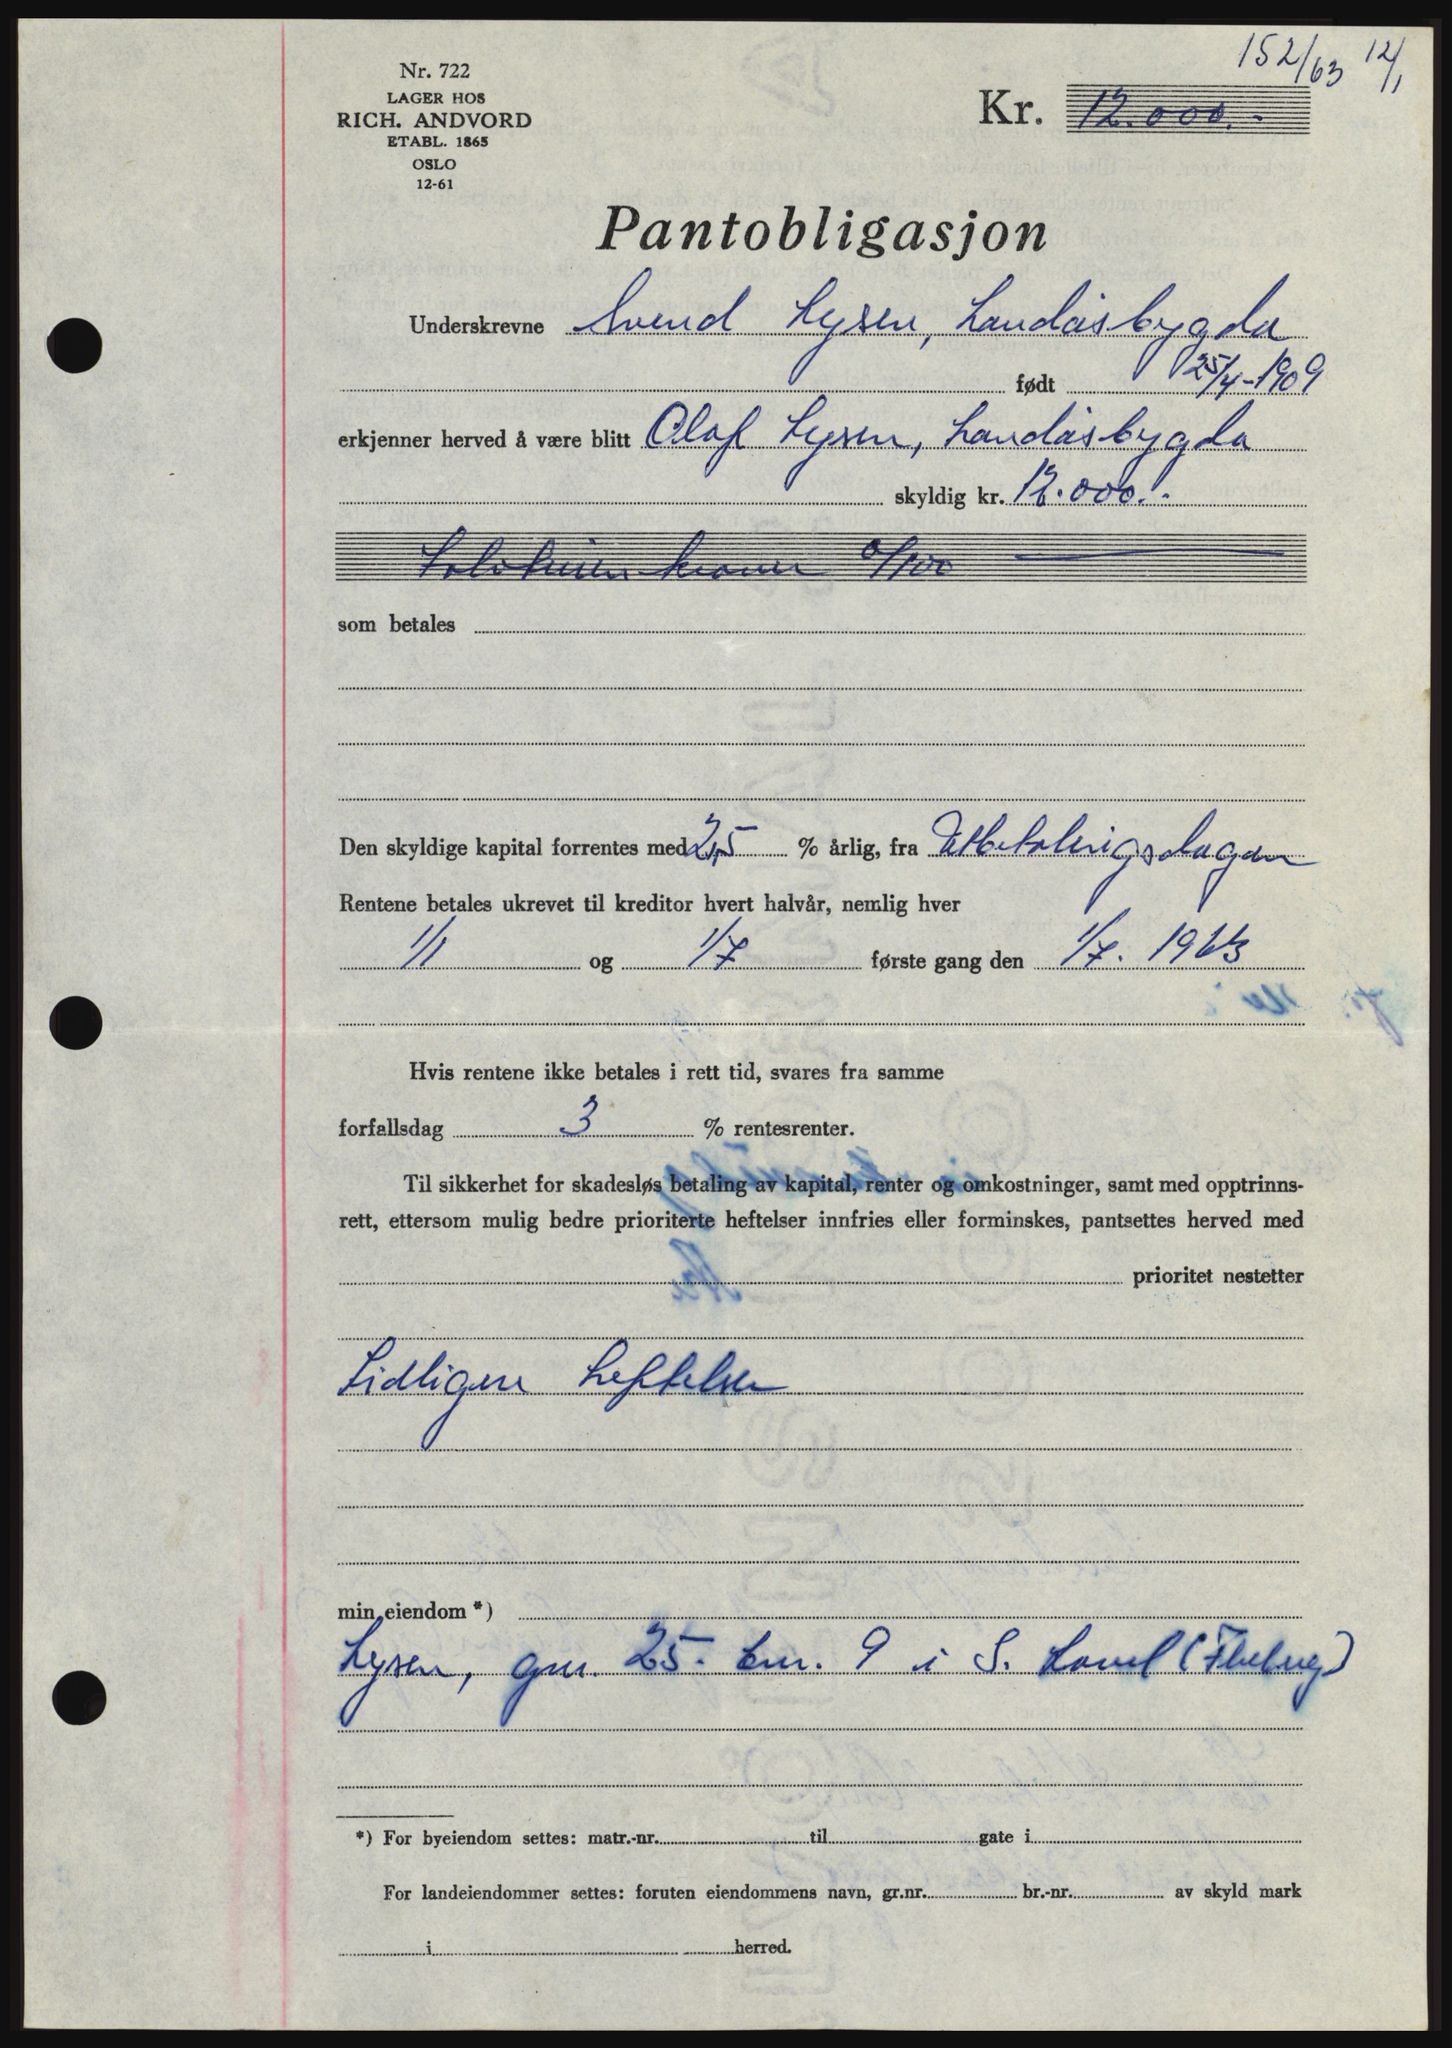 152/63 12/1
Nr. 722
LAGER HOS
RICH. ANDVORD
ETABL. 1865
OSLO
12-61
Kr. 12.000.-
Pantobligasjon
Underskrevne Svend Lysen, Landåsbygda
født 25/4-1909
erkjenner herved å være blitt Olaf Lysen, Landåsbygda
skyldig kr. 12.000.-
kroner 0/100
som betales
Den skyldige kapital forrentes med 2,5 % årlig, fra Utbetalingsdagen
Rentene betales ukrevet til kreditor hvert halvår, nemlig hver
1/1 og 1/7 første gang den 1/7. 1963
Hvis rentene ikke betales i rett tid, svares fra samme
forfallsdag 3 % rentesrenter.
Til sikkerhet for skadesløs betaling av kapital, renter og omkostninger, samt med opptrinns-
rett, ettersom mulig bedre prioriterte heftelser innfries eller forminskes, pantsettes herved med
prioritet nestetter
Tidligere heftelser
min eiendom *)
Lysen, gnr. 25. bnr. 9 i S. Land (Fluberg)
*) For byeiendom settes: matr.-nr. til gate i
For landeiendommer settes: foruten eiendommens navn, gr.nr. br.-nr. av skyld mark
i herred.